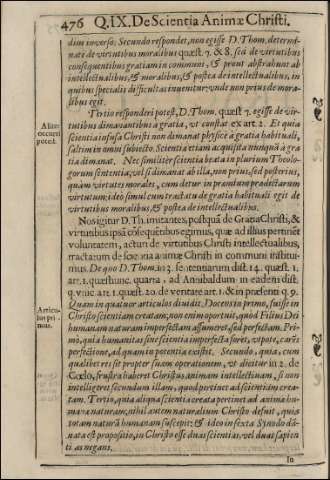 476 Q.IX. De Scientia Animæ Christi.
dim inverso; Secundo respondet, non egisse D. Thom. determi-
nate de virtutibus moralibus quæst. 7. & 8. sed de virtutibus
consequentibus gratiam in communi, & prout abstrahunt ab
intellectualibus, & moralibus, & postea de intellectualibus, in
quibus specialis difficultas invenitur: unde non prius de mora-
libus egit.
Alii
occurrit
potest.
Tertio responderi potest, D. Thom. quæst. 7. egisse de vir-
tutibus dimanantibus à gratia, ut constat ex art. 2. Et quia
scientia infusa Christi non dimanat physicè à gratia habituali,
saltim in omni subiecto. Scientia etiam acquisita nunquã à gra-
tia dimanat. Nec similiter scientia beata in plurium Theolo-
gorum sententia; vel si dimanat ab illa, non prius, sed posterius,
quàm virtutes morales, cum detur in præmium prædictarum
virtutum; ideo simul cum tractatu de gratia habituali egit de
virtutibus moralibus, & postea de intellectualibus.
Nos igitur D. Th. imitantes, postquã de Gratia Christi, &
virtutibus ipsã cõsequẽtibus egimus, quæ ad illius pertinẽt
voluntatem, acturi de virtutibus Christi intellectualibus,
tractatum de scientia animæ Christi in communi institui-
mus. De quo D. Thom. in 3. sententiarum dist. 14. quæst. 1.
art. 1. quæstiunc. quarta, ad Annibaldum in eadem dist.
q. unic. art. 1. quæst. 20. de veritate art. 1. & in præsenti q. 9.
Articu-
lus pri-
mus.
Quam in quatuor articulos dividit. Docens in primo, fuisse in
Christo scientiam creatam, non enim oportuit, quod Filius Dei
humanam naturam imperfectam assumeret, sed perfectam. Pri-
mò, quia humanitas sine scientia imperfecta foret, utpote, carẽs
perfectione, ad quam in potentia existit. Secundo, quia, cum
quælibet res sit propter suam operationem, ut dicitur in 2. de
Cœlo, frustra haberet Christus animam intellectivam, si non
intelligeret secundum illam, quod pertinet ad scientiam crea-
tam. Tertio, quia aliqua scientia creata pertinet ad animã hu-
manæ naturam; nihil autem naturalium Christo defuit, quia
totam naturã humanam suscepit; & ideo in sexta Synodo dã-
nata est propositio, in Christo esse duas scientias, vel duas sapien
tias negans.
In